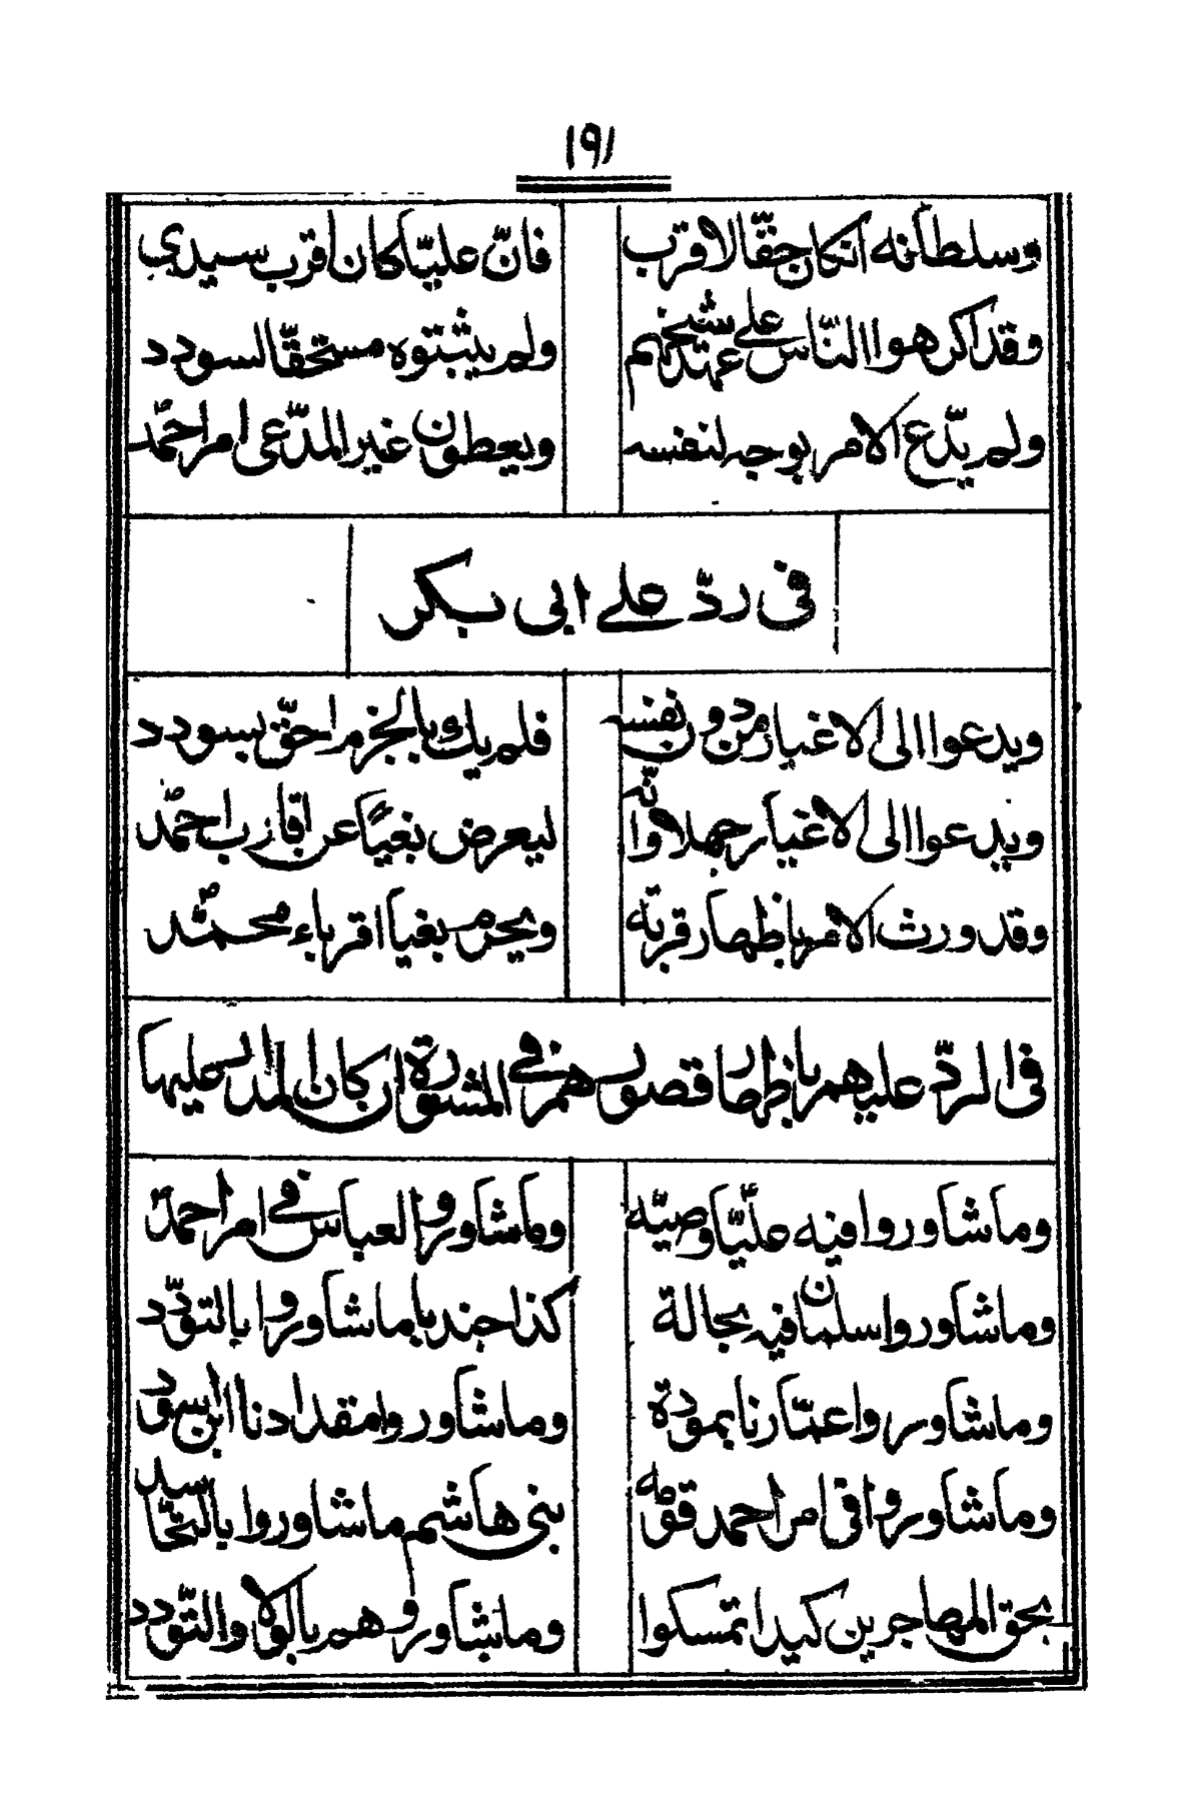 ١٩١
وسلطانه ان كان حقا لاقرب فانّ عليّا كان اقرب سيدي
وقد اكرهوا الناس على عهد شيخهم ولم يثبتوه مستحقّا لسودد
ولم يدّع الامر بوجه لنفسه ويعطون غير المدّعى امر احمد
فى ردّ على ابى بكر
ويدعوا الى الاغيار من دون نفسه فلم يك بالجزم احقّ بسودد
ويدعوا الى الاغيار جهلا وانّه ليعرض بغيًا عن اقارب احمد
وقد ورث الامر باظهار قربه ويحرم بغيا اقرباء محمّد
فى الردّ عليهم باظهار قصورهم فى المشورة ان كان المدار عليها
وما شاوروا فيه عليّا وصيّه وما شاوروا العباس فى امر احمد
وما شاوروا سلمان فيه بحالة كذا جند با ما شاوروا بالتودّد
وما شاوروا عمّارنا بمودة وما شاوروا مقدادنا ابن اسود
وما شاوروا فى امر احمد قومه بنى هاشم ما شاوروا بالتحاسد
بحق المهاجرين كيدا تمسكوا وما شاوروهم بالولا والتودد